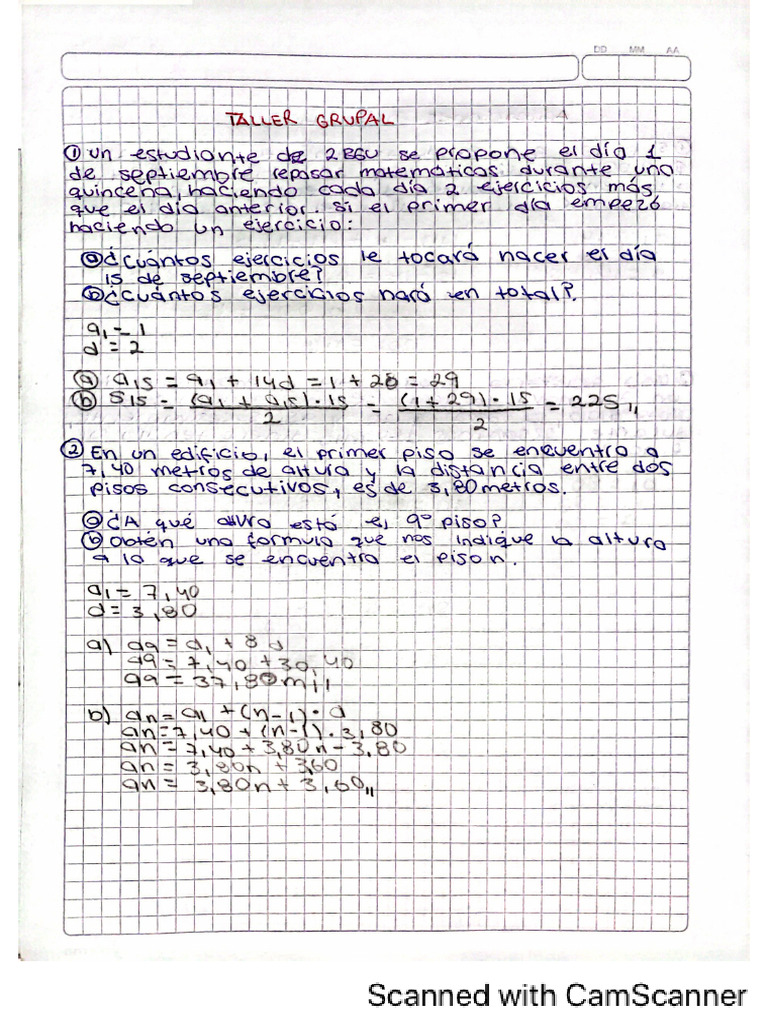 DD MM AA
TALLER GRUPAL
① Un estudiante de 2 BGU se propone el día 1
de septiembre repasar matemáticas durante una
quincena, haciendo cada día 2 ejercicios más
que el día anterior. Si el primer día empezó
haciendo un ejercicio:
ⓐ ¿Cuántos ejercicios le tocará hacer el día
15 de septiembre?
ⓑ ¿Cuántos ejercicios hará en total?.
a₁ = 1
d = 2
ⓐ a15 = a1 + 14d = 1 + 28 = 29
ⓑ S15 = (a1 + a15) · 15 / 2 = (1 + 29) · 15 / 2 = 225 ,,
② En un edificio, el primer piso se encuentra a
7,40 metros de altura y la distancia entre dos
pisos consecutivos, es de 3,80 metros.
ⓐ ¿A qué altura está el 9º piso?.
ⓑ Obtén una formula que nos indique la altura
a la que se encuentra el piso n.
a1 = 7,40
d = 3,80
a) a9 = a1 + 8 d
a9 = 7,40 + 30,40
a9 = 37,80 m ,,
b) an = a1 + (n-1) · d
an = 7,40 + (n-1) · 3,80
an = 7,40 + 3,80n - 3,80
an = 3,80n + 3,60
an = 3,80n + 3,60 ,,
Scanned with CamScanner